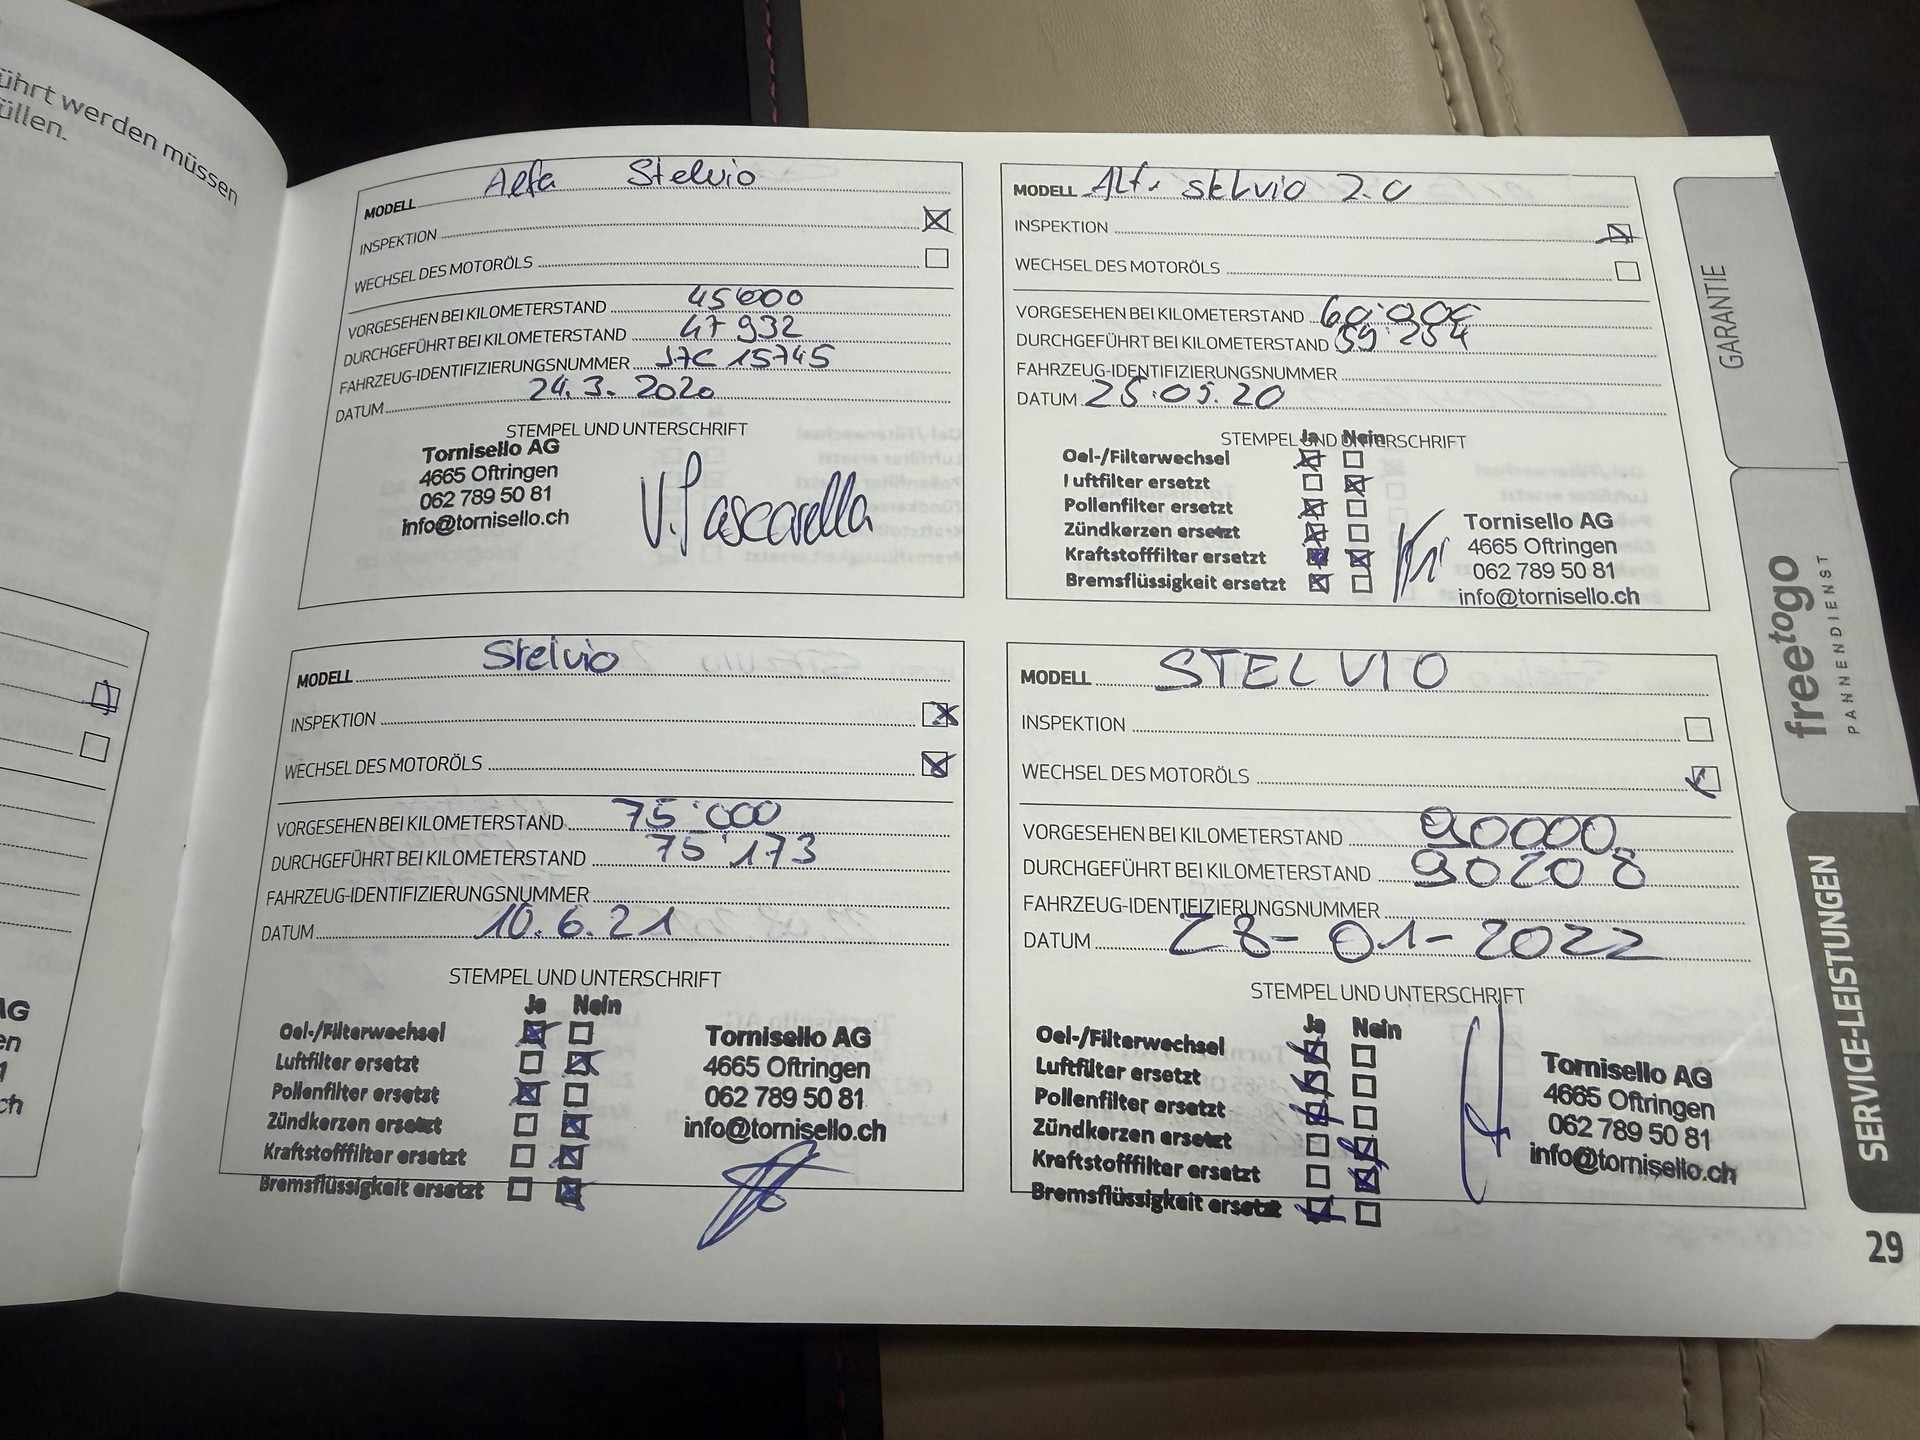 ührt werden müssen
üllen.
MODELL Alfa Stelvio
INSPEKTION
WECHSEL DES MOTORÖLS
VORGESEHEN BEI KILOMETERSTAND 45000
DURCHGEFÜHRT BEI KILOMETERSTAND 47 932
FAHRZEUG-IDENTIFIZIERUNGSNUMMER J7C 15745
DATUM 24.3. 2020
STEMPEL UND UNTERSCHRIFT
Tornisello AG
4665 Oftringen
062 789 50 81
info@tornisello.ch
V. Pascarella
MODELL Alfa Stelvio 2.0
INSPEKTION
WECHSEL DES MOTORÖLS
VORGESEHEN BEI KILOMETERSTAND 60'000
DURCHGEFÜHRT BEI KILOMETERSTAND 59'254
FAHRZEUG-IDENTIFIZIERUNGSNUMMER
DATUM 25.09.20
STEMPEL UND UNTERSCHRIFT
Ja Nein
Oel-/Filterwechsel
Luftfilter ersetzt
Pollenfilter ersetzt
Zündkerzen ersetzt
Kraftstofffilter ersetzt
Bremsflüssigkeit ersetzt
Tornisello AG
4665 Oftringen
062 789 50 81
info@tornisello.ch
MODELL Stelvio
INSPEKTION
WECHSEL DES MOTORÖLS
VORGESEHEN BEI KILOMETERSTAND 75'000
DURCHGEFÜHRT BEI KILOMETERSTAND 75'173
FAHRZEUG-IDENTIFIZIERUNGSNUMMER
DATUM 10.6.21
STEMPEL UND UNTERSCHRIFT
Ja Nein
Oel-/Filterwechsel
Luftfilter ersetzt
Pollenfilter ersetzt
Zündkerzen ersetzt
Kraftstofffilter ersetzt
Bremsflüssigkeit ersetzt
Tornisello AG
4665 Oftringen
062 789 50 81
info@tornisello.ch
MODELL STELVIO
INSPEKTION
WECHSEL DES MOTORÖLS
VORGESEHEN BEI KILOMETERSTAND 90000
DURCHGEFÜHRT BEI KILOMETERSTAND 90208
FAHRZEUG-IDENTIFIZIERUNGSNUMMER
DATUM 28-01-2022
STEMPEL UND UNTERSCHRIFT
Ja Nein
Oel-/Filterwechsel
Luftfilter ersetzt
Pollenfilter ersetzt
Zündkerzen ersetzt
Kraftstofffilter ersetzt
Bremsflüssigkeit ersetzt
Tornisello AG
4665 Oftringen
062 789 50 81
info@tornisello.ch
GARANTIE
freetogo
PANNENDIENST
SERVICE-LEISTUNGEN
29